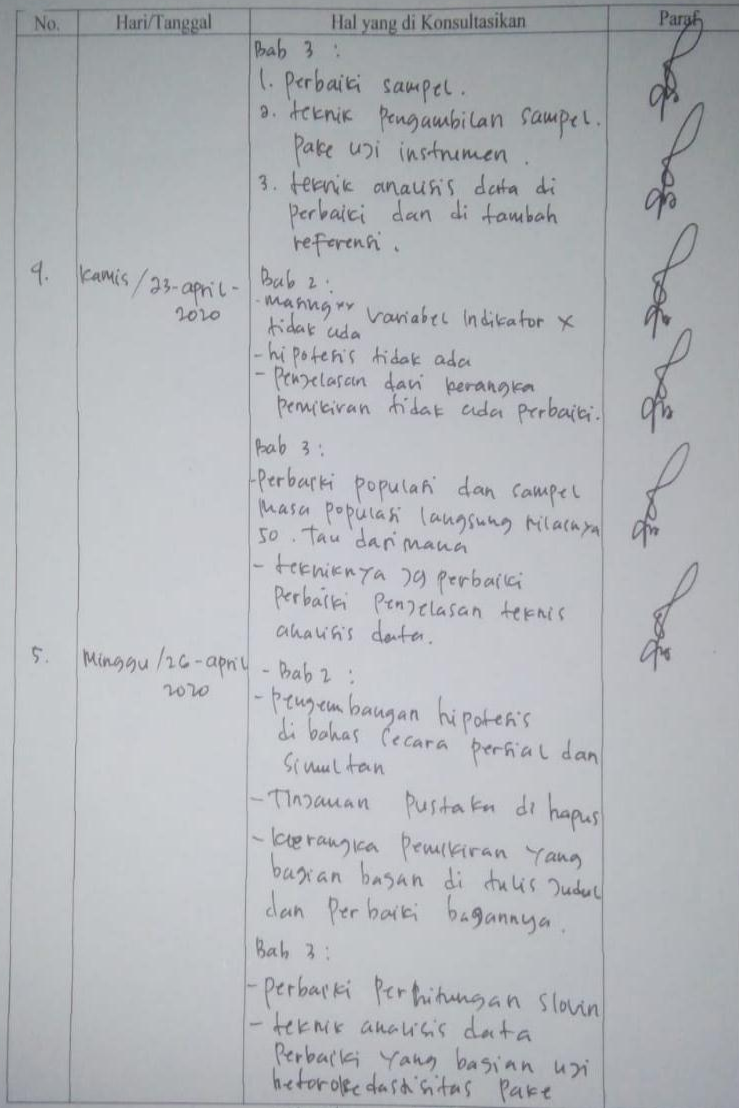 No. Hari/Tanggal Hal yang di Konsultasikan Paraf
Bab 3 :
1. Perbaiki sampel.
2. teknik Pengambilan sampel.
Pake uji instrumen.
3. teknik analisis data di
perbaiki dan di tambah
referensi.
4. Kamis / 23-april-
2020
Bab 2 :
- masing" variabel Indikator x
tidak ada
- hipotesis tidak ada
- Penjelasan dari kerangka
Pemikiran tidak ada perbaiki.
Bab 3 :
- Perbaiki populasi dan sampel
Masa populasi langsung nilainya
50. Tau dari mana
- tekniknya yg perbaiki
Perbaiki Penjelasan teknis
analisis data.
5. Minggu / 26-april
2020
- Bab 2 :
- Pengembangan hipotesis
di bahas secara persial dan
Simultan
- Tinjauan Pustaka di hapus
- kerangka Pemikiran Yang
bagian bagan di tulis Judul
dan Perbaiki bagannya.
Bab 3 :
- Perbaiki Perhitungan Slovin
- teknik analisis data
Perbaiki Yang bagian uji
heteroskedastisitas Pake